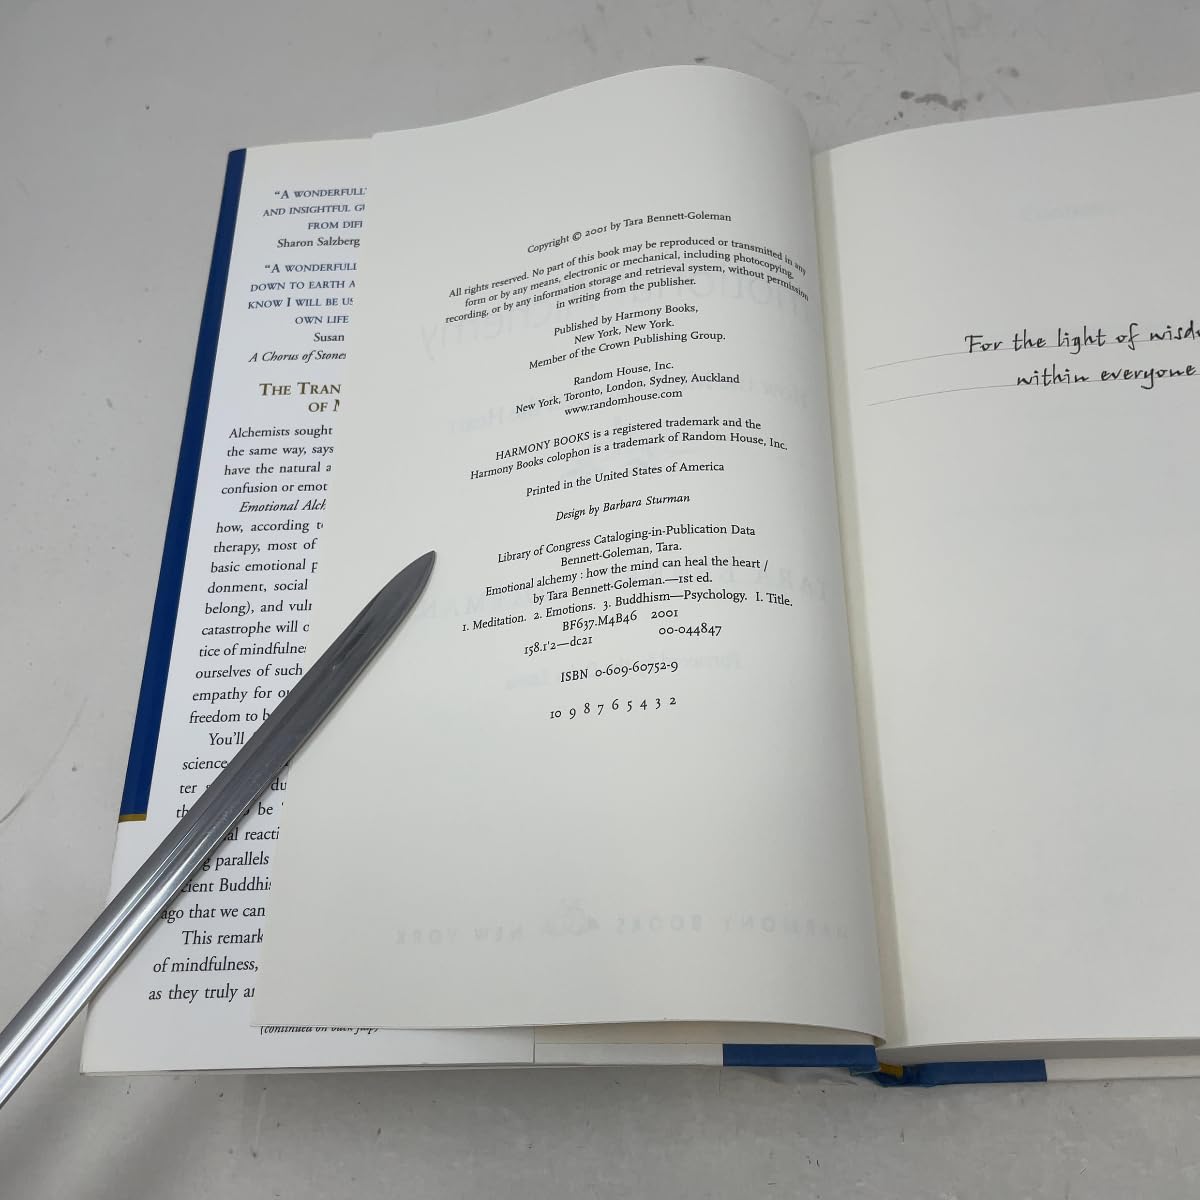 “A WONDERFULL
AND INSIGHTFUL
FROM DIFI
Sharon Salzberg
“A WONDERFULL
DOWN TO EARTH A
KNOW I WILL BE US
OWN LIFE
Susan
A Chorus of Stones
THE TRAN
OF
Alchemists sought
the same way, says
have the natural a
confusion or emot
Emotional Alch
how, according t
therapy, most of
basic emotional p
donment, social
belong), and vuln
catastrophe will
tice of mindfulne
ourselves of such
empathy for
freedom to b
You’ll
science
ter du
th be
al reacti
parallels
cient Buddhi
ago that we can
This remark
of mindfulness,
as they truly ar
(continued on back flap)
Copyright © 2001 by Tara Bennett-Goleman
All rights reserved. No part of this book may be reproduced or transmitted in any
form or by any means, electronic or mechanical, including photocopying,
recording, or by any information storage and retrieval system, without permission
in writing from the publisher.
Published by Harmony Books,
New York, New York.
Member of the Crown Publishing Group.
Random House, Inc.
New York, Toronto, London, Sydney, Auckland
www.randomhouse.com
HARMONY BOOKS is a registered trademark and the
Harmony Books colophon is a trademark of Random House, Inc.
Printed in the United States of America
Design by Barbara Sturman
Library of Congress Cataloging-in-Publication Data
Bennett-Goleman, Tara.
Emotional alchemy : how the mind can heal the heart /
by Tara Bennett-Goleman.—1st ed.
1. Meditation. 2. Emotions. 3. Buddhism—Psychology. I. Title.
BF637.M4B46 2001
158.1'2—dc21 00-044847
ISBN 0-609-60752-9
10 9 8 7 6 5 4 3 2
For the light of wisdo
within everyone